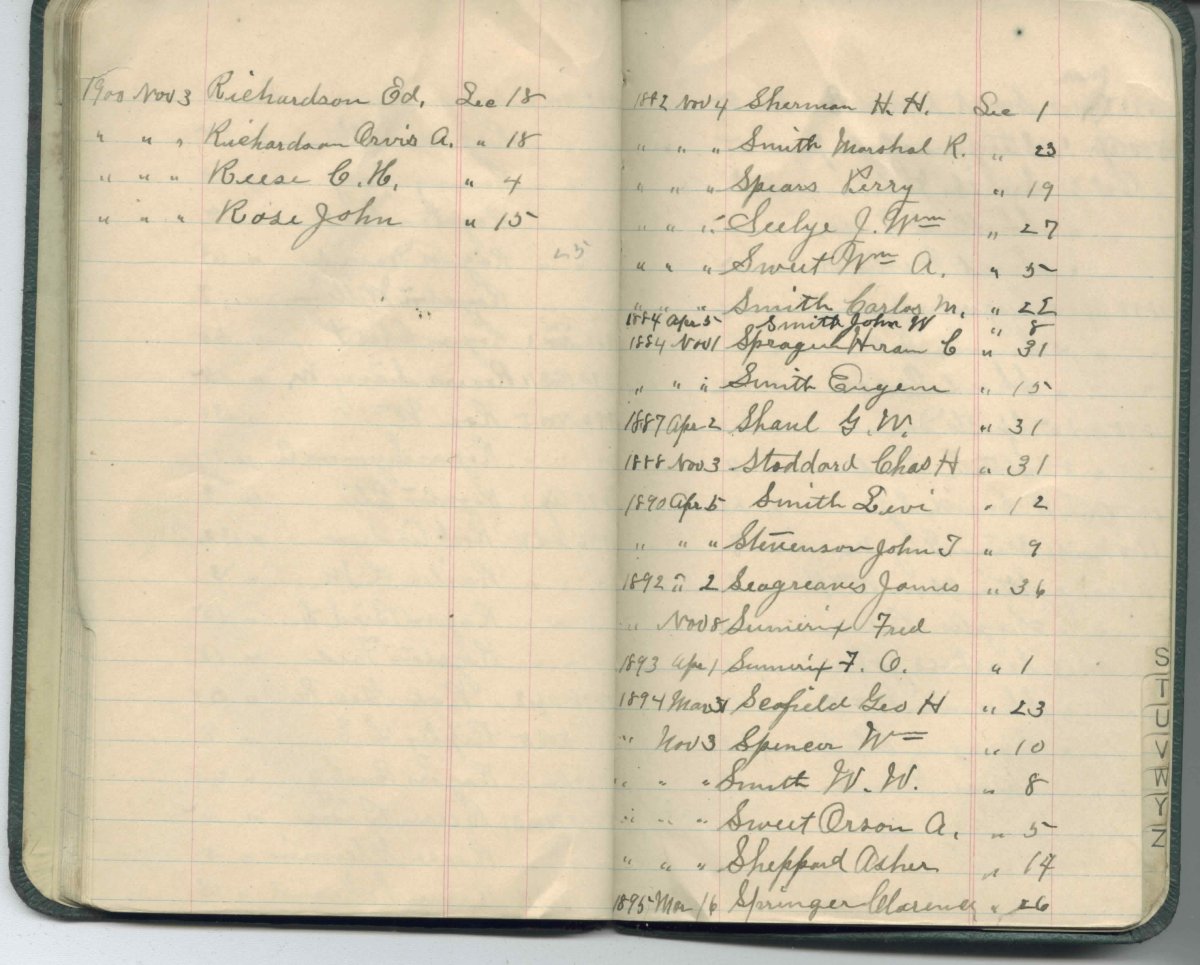 1900 Nov 3 Richardson Ed. Sec 18
" " " Richardson Orvis A. " 18
" " " Reese C. H. " 4
" " " Rose John " 15
25
1882 Nov 4 Sherman H. H. Sec 1
" " " Smith Marshal R. " 23
" " " Spears Perry " 19
" " " Seelye J. Wm " 27
" " " Sweet Wm A. " 5
" " " Smith Carlos M. " 22
1884 Apr 5 Smith John W " 8
1884 Nov 1 Sprague Hiram C " 31
" " " Smith Eugene " 15
1887 Apr 2 Shaul G. W. " 31
1888 Nov 3 Stoddard Chas H " 31
1890 Apr 5 Smith Levi " 12
" " " Stevenson John T " 9
1892 " 2 Seagreaves James " 36
" Nov 8 Sumerix Fred
1893 Apr 1 Sumerix F. O. " 1
1894 Mar 31 Scofield Geo H " 23
" Nov 3 Spencer Wm " 10
" " " Smith W. W. " 8
" " " Sweet Orson A. " 5
" " " Sheppard Asher " 14
1895 Mar 16 Springer Clarence " 26
S
T
U
V
W
Y
Z